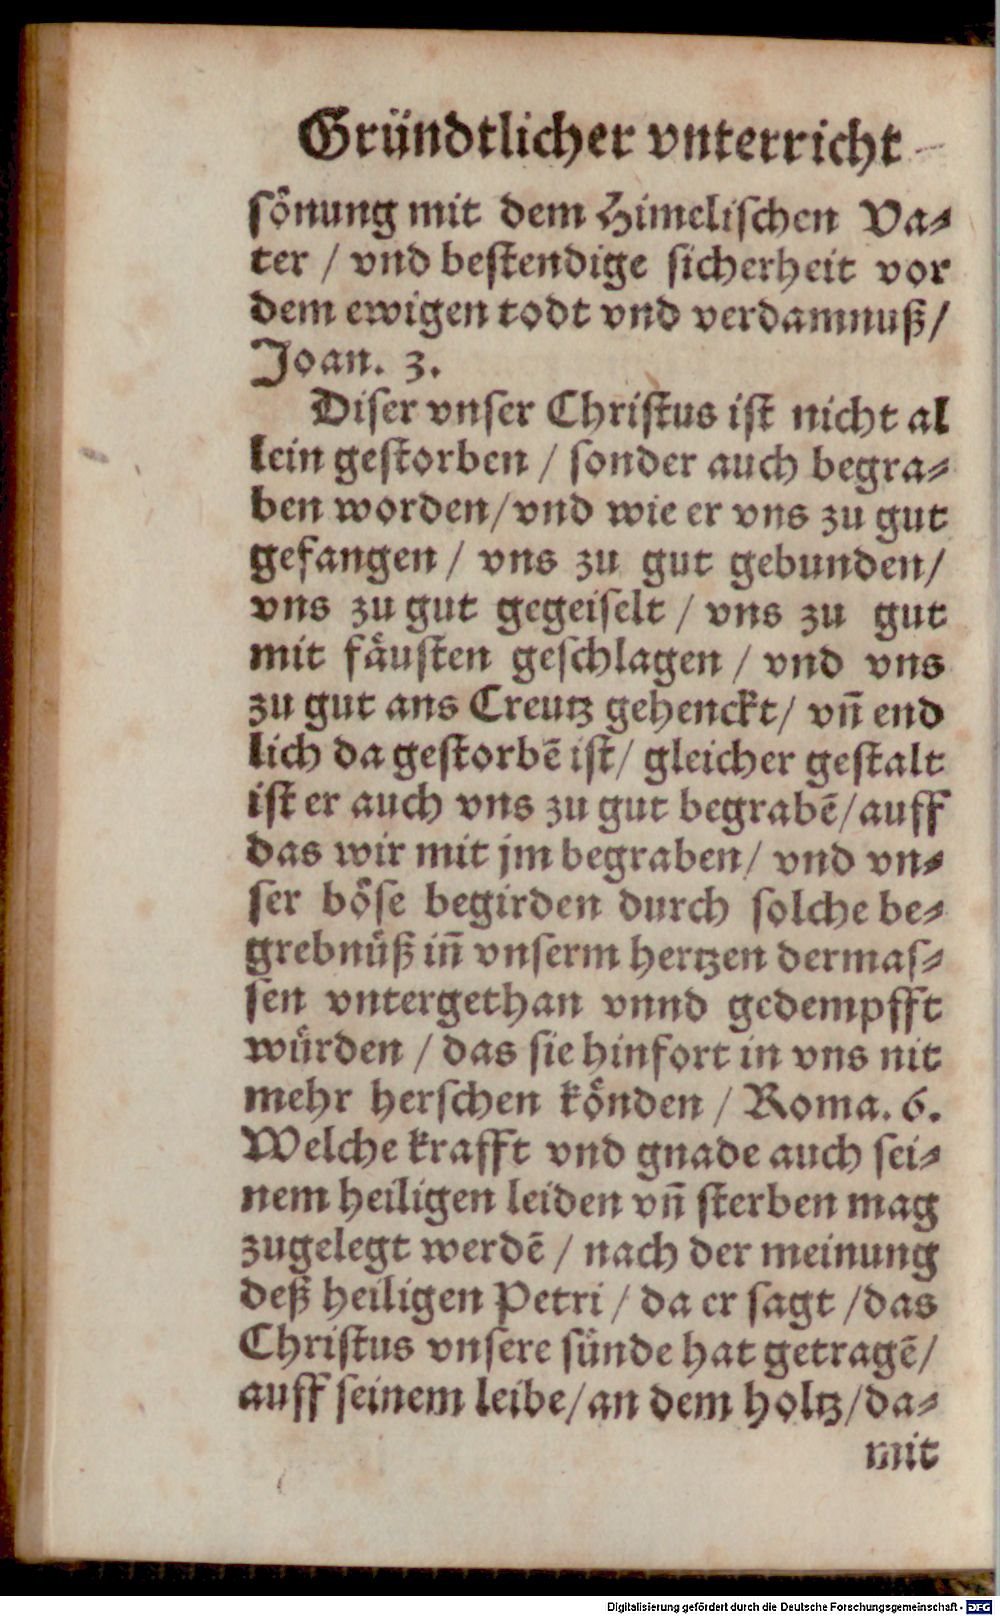 Gründtlicher vnterricht
sönung mit dem Himelischen Va-
ter / vnd bestendige sicherheit vor
dem ewigen todt vnd verdamnuß/
Joan. 3.
Diser vnser Christus ist nicht al
lein gestorben / sonder auch begra-
ben worden/vnd wie er vns zu gut
gefangen / vns zu gut gebunden/
vns zu gut gegeiselt / vns zu gut
mit fäusten geschlagen / vnd vns
zu gut ans Creutz gehenckt/ vn̄ end
lich da gestorbē ist/ gleicher gestalt
ist er auch vns zu gut begrabē/auff
das wir mit jm begraben/ vnd vn-
ser böse begirden durch solche be-
grebnüß in̄ vnserm hertzen dermas-
sen vntergethan vnnd gedempfft
würden / das sie hinfort in vns nit
mehr herschen könden / Roma. 6.
Welche krafft vnd gnade auch sei-
nem heiligen leiden vn̄ sterben mag
zugelegt werdē / nach der meinung
deß heiligen Petri / da er sagt /das
Christus vnsere sünde hat getragē/
auff seinem leibe/an dem holtz/da-
mit
Digitalisierung gefördert durch die Deutsche Forschungsgemeinschaft - DFG